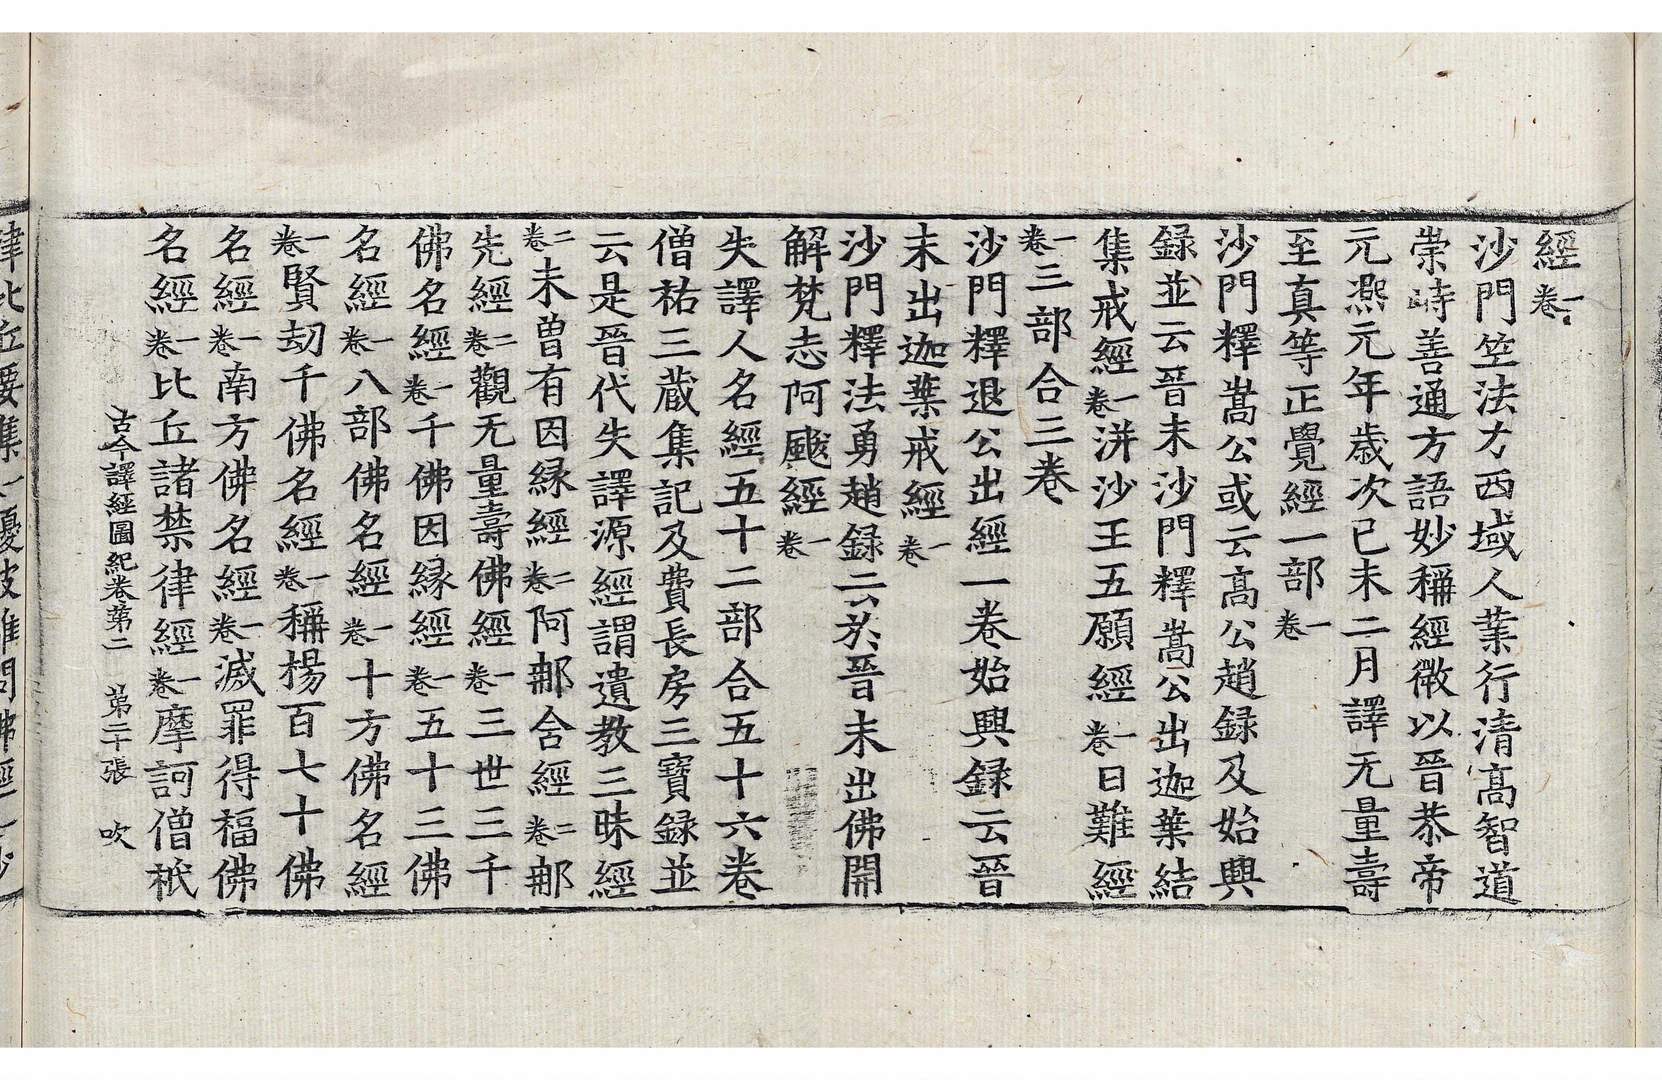 經一卷
沙門竺法力西域人業行清高智道
崇峙善通方語妙稱經微以晉恭帝
元熙元年歲次己未二月譯无量壽
至真等正覺經一部一卷
沙門釋嵩公或云高公趙録及始興
録並云晉末沙門釋嵩公出迦葉結
集戒經一卷洴沙王五願經一卷日難經
一卷三部合三卷
沙門釋退公出經一卷始興録云晉
末出迦葉戒經一卷
沙門釋法勇趙録云於晉末出佛開
解梵志阿颰經一卷
失譯人名經五十二部合五十六卷
僧祐三藏集記及費長房三寶録並
云是晉代失譯源經謂遺教三昧經
二卷未曾有因縁經二卷阿郍含經二卷郍
先經二卷觀无量壽佛經一卷三世三千
佛名經一卷千佛因縁經一卷五十三佛
名經一卷八部佛名經一卷十方佛名經
一卷賢劫千佛名經一卷稱楊百七十佛
名經一卷南方佛名經一卷滅罪得福佛
名經一卷比丘諸禁律經一卷摩訶僧祇
古今譯經圖紀卷第二　第二十張　吹